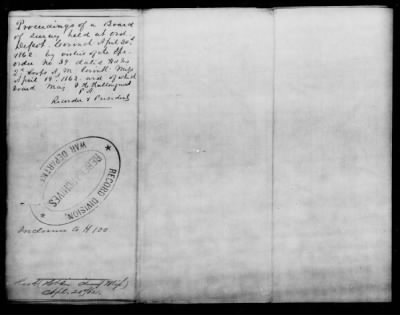 Proceedings of a Board
of Survey held at Ord
Depot Corinth April 20th
1862 by virtue of
order No 39 dated Hd Qrs
2d Corps A. M. Corinth Miss
April 19th 1862 and of which
board Maj
P.A.
Recorder & President
RECORD DIVISION,
REBEL ARCHIVES
WAR DEPARTMENT
Inclosure to H 100
Apl. 20/62.